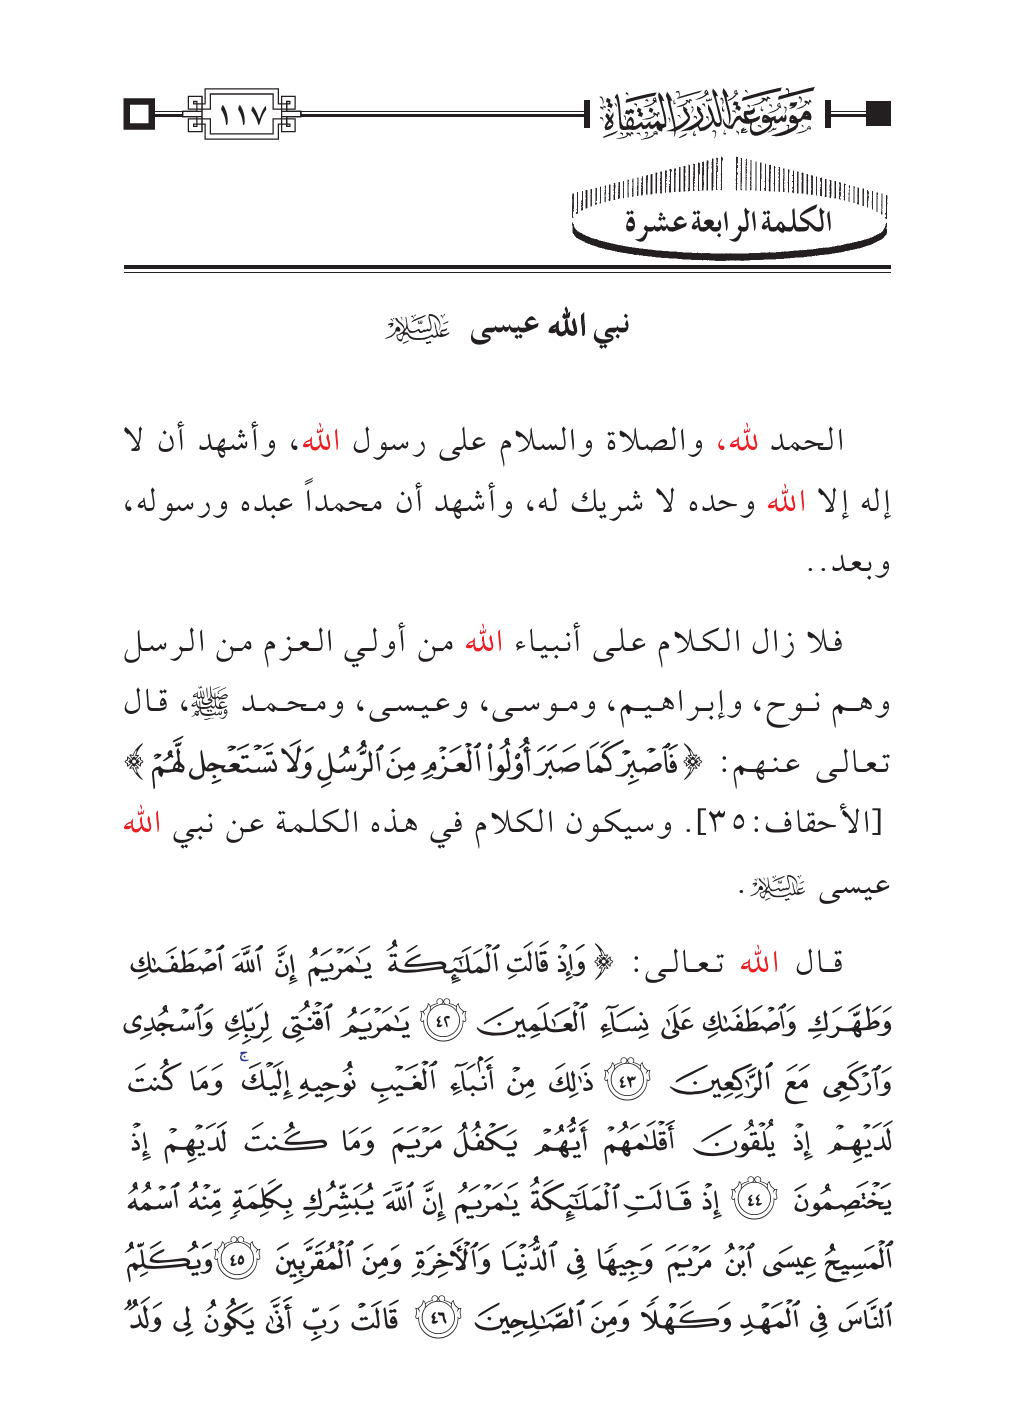 موسوعة الدرر المنتقاة
١١٧
الكلمة الرابعة عشرة
نبي الله عيسى عليه السلام
الحمد لله، والصلاة والسلام على رسول الله، وأشهد أن لا
إله إلا الله وحده لا شريك له، وأشهد أن محمداً عبده ورسوله،
وبعد..
فلا زال الكلام على أنبياء الله من أولي العزم من الرسل
وهم نوح، وإبراهيم، وموسى، وعيسى، ومحمد ﷺ، قال
تعالى عنهم: ﴿فَٱصْبِرْ كَمَا صَبَرَ أُوْلُواْ ٱلْعَزْمِ مِنَ ٱلرُّسُلِ وَلَا تَسْتَعْجِل لَّهُمْ﴾
[الأحقاف:٣٥]. وسيكون الكلام في هذه الكلمة عن نبي الله
عيسى عليه السلام.
قال الله تعالى: ﴿وَإِذْ قَالَتِ ٱلْمَلَٰٓئِكَةُ يَٰمَرْيَمُ إِنَّ ٱللَّهَ ٱصْطَفَىٰكِ
وَطَهَّرَكِ وَٱصْطَفَىٰكِ عَلَىٰ نِسَآءِ ٱلْعَٰلَمِينَ ٤٢ يَٰمَرْيَمُ ٱقْنُتِى لِرَبِّكِ وَٱسْجُدِى
وَٱرْكَعِى مَعَ ٱلرَّٰكِعِينَ ٤٣ ذَٰلِكَ مِنْ أَنۢبَآءِ ٱلْغَيْبِ نُوحِيهِ إِلَيْكَ ۚ وَمَا كُنتَ
لَدَيْهِمْ إِذْ يُلْقُونَ أَقْلَٰمَهُمْ أَيُّهُمْ يَكْفُلُ مَرْيَمَ وَمَا كُنتَ لَدَيْهِمْ إِذْ
يَخْتَصِمُونَ ٤٤ إِذْ قَالَتِ ٱلْمَلَٰٓئِكَةُ يَٰمَرْيَمُ إِنَّ ٱللَّهَ يُبَشِّرُكِ بِكَلِمَةٍ مِّنْهُ ٱسْمُهُ
ٱلْمَسِيحُ عِيسَى ٱبْنُ مَرْيَمَ وَجِيهًا فِى ٱلدُّنْيَا وَٱلْأَخِرَةِ وَمِنَ ٱلْمُقَرَّبِينَ ٤٥ وَيُكَلِّمُ
ٱلنَّاسَ فِى ٱلْمَهْدِ وَكَهْلًا وَمِنَ ٱلصَّٰلِحِينَ ٤٦ قَالَتْ رَبِّ أَنَّىٰ يَكُونُ لِى وَلَدٌ